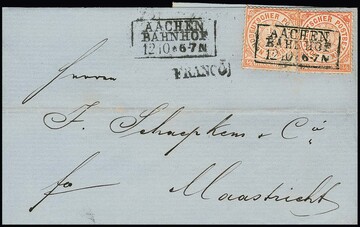 AACHEN
BAHNHOF
12 10 6-7N
AACHEN
BAHNHOF
12 10 6-7N
FRANCO
Herren
F. Schaepkens & Co
Maastricht